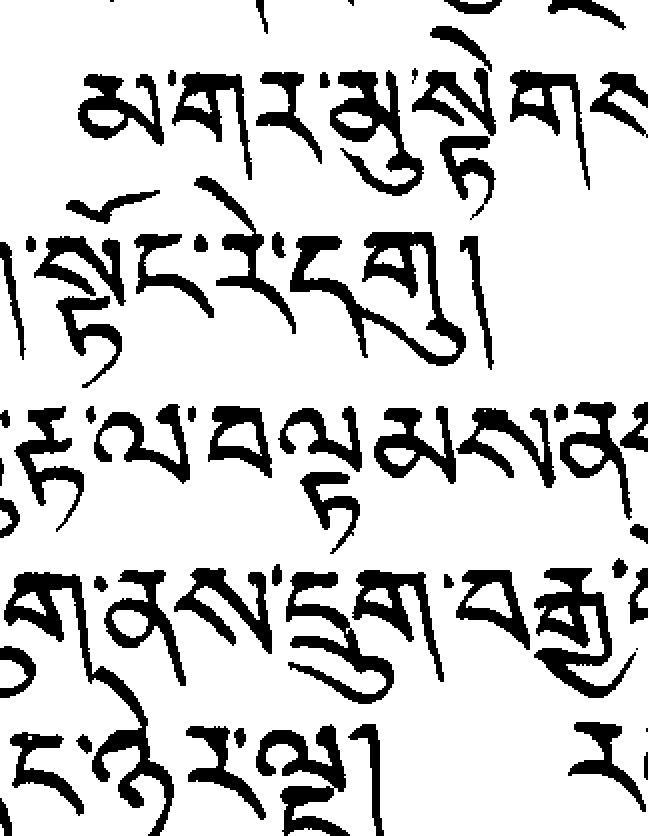 མ་གར་མུ་སྟེགས
་སྟོང་རེ་དགུ།
རྟ་ལ་བལྟམས་ན
ག་ནས་དྲུག་བརྒྱ་
ང་ཉེར་ལྔ། ར